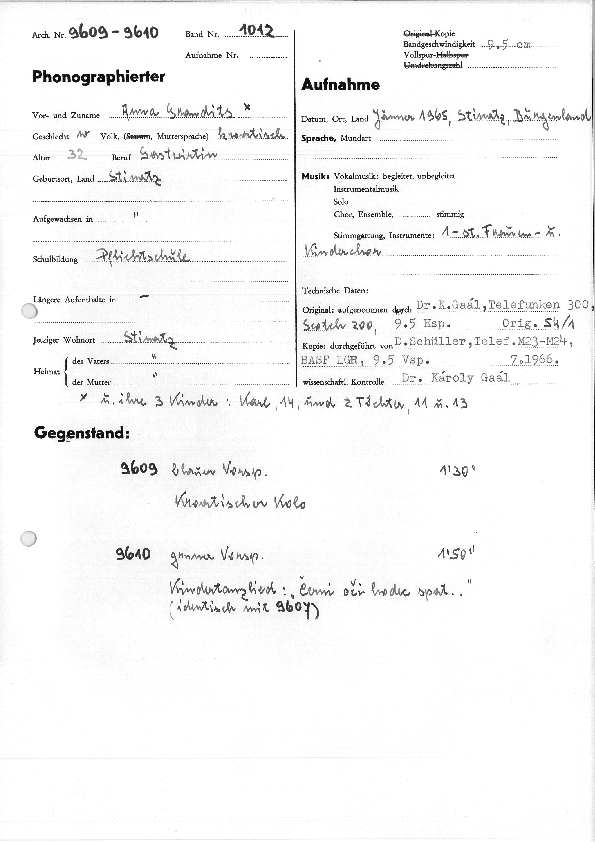 Arch. Nr. 9609 - 9610 Band Nr. 1012
Aufnahme Nr.
Original-Kopie
Bandgeschwindigkeit 9.5 cm
Vollspur-Halbspur
Umdrehungszahl
Phonographierter
Vor- und Zuname Anna Grandits *
Geschlecht W Volk, (Stamm, Muttersprache) kroatisch
Alter 32 Beruf Gastwirtin
Geburtsort, Land Stinatz
Aufgewachsen in "
Schulbildung Pflichtschule
Längere Aufenthalte in –
Jetziger Wohnort Stinatz
Heimat des Vaters "
der Mutter "
Aufnahme
Datum, Ort, Land Jänner 1965, Stinatz, Burgenland
Sprache, Mundart
Musik: Vokalmusik: begleitet, unbegleitet
Instrumentalmusik
Solo
Chor, Ensemble, stimmig
Stimmgattung, Instrumente: 1-st. Frauen- u.
Kinderchor
Technische Daten:
Original: aufgenommen durch Dr.K.Gaál, Telefunken 300,
Scotch 200, 9.5 Hsp. Orig. S4/1
Kopie: durchgeführt von D.Schüller, Telef.M23-M24,
BASF LGR, 9.5 Vsp. 7.1966.
wissenschaftl. Kontrolle Dr. Károly Gaál
* u. ihre 3 Kinder: Karl, 14, und 2 Töchter, 11 u. 13
Gegenstand:
9609 blauer Vorsp. 1'30"
Kroatischer Kolo
9610 Vorsp. 1'50"
Kindertanzlied: „Černi oči hodte spat.."
(identisch mit 9607)